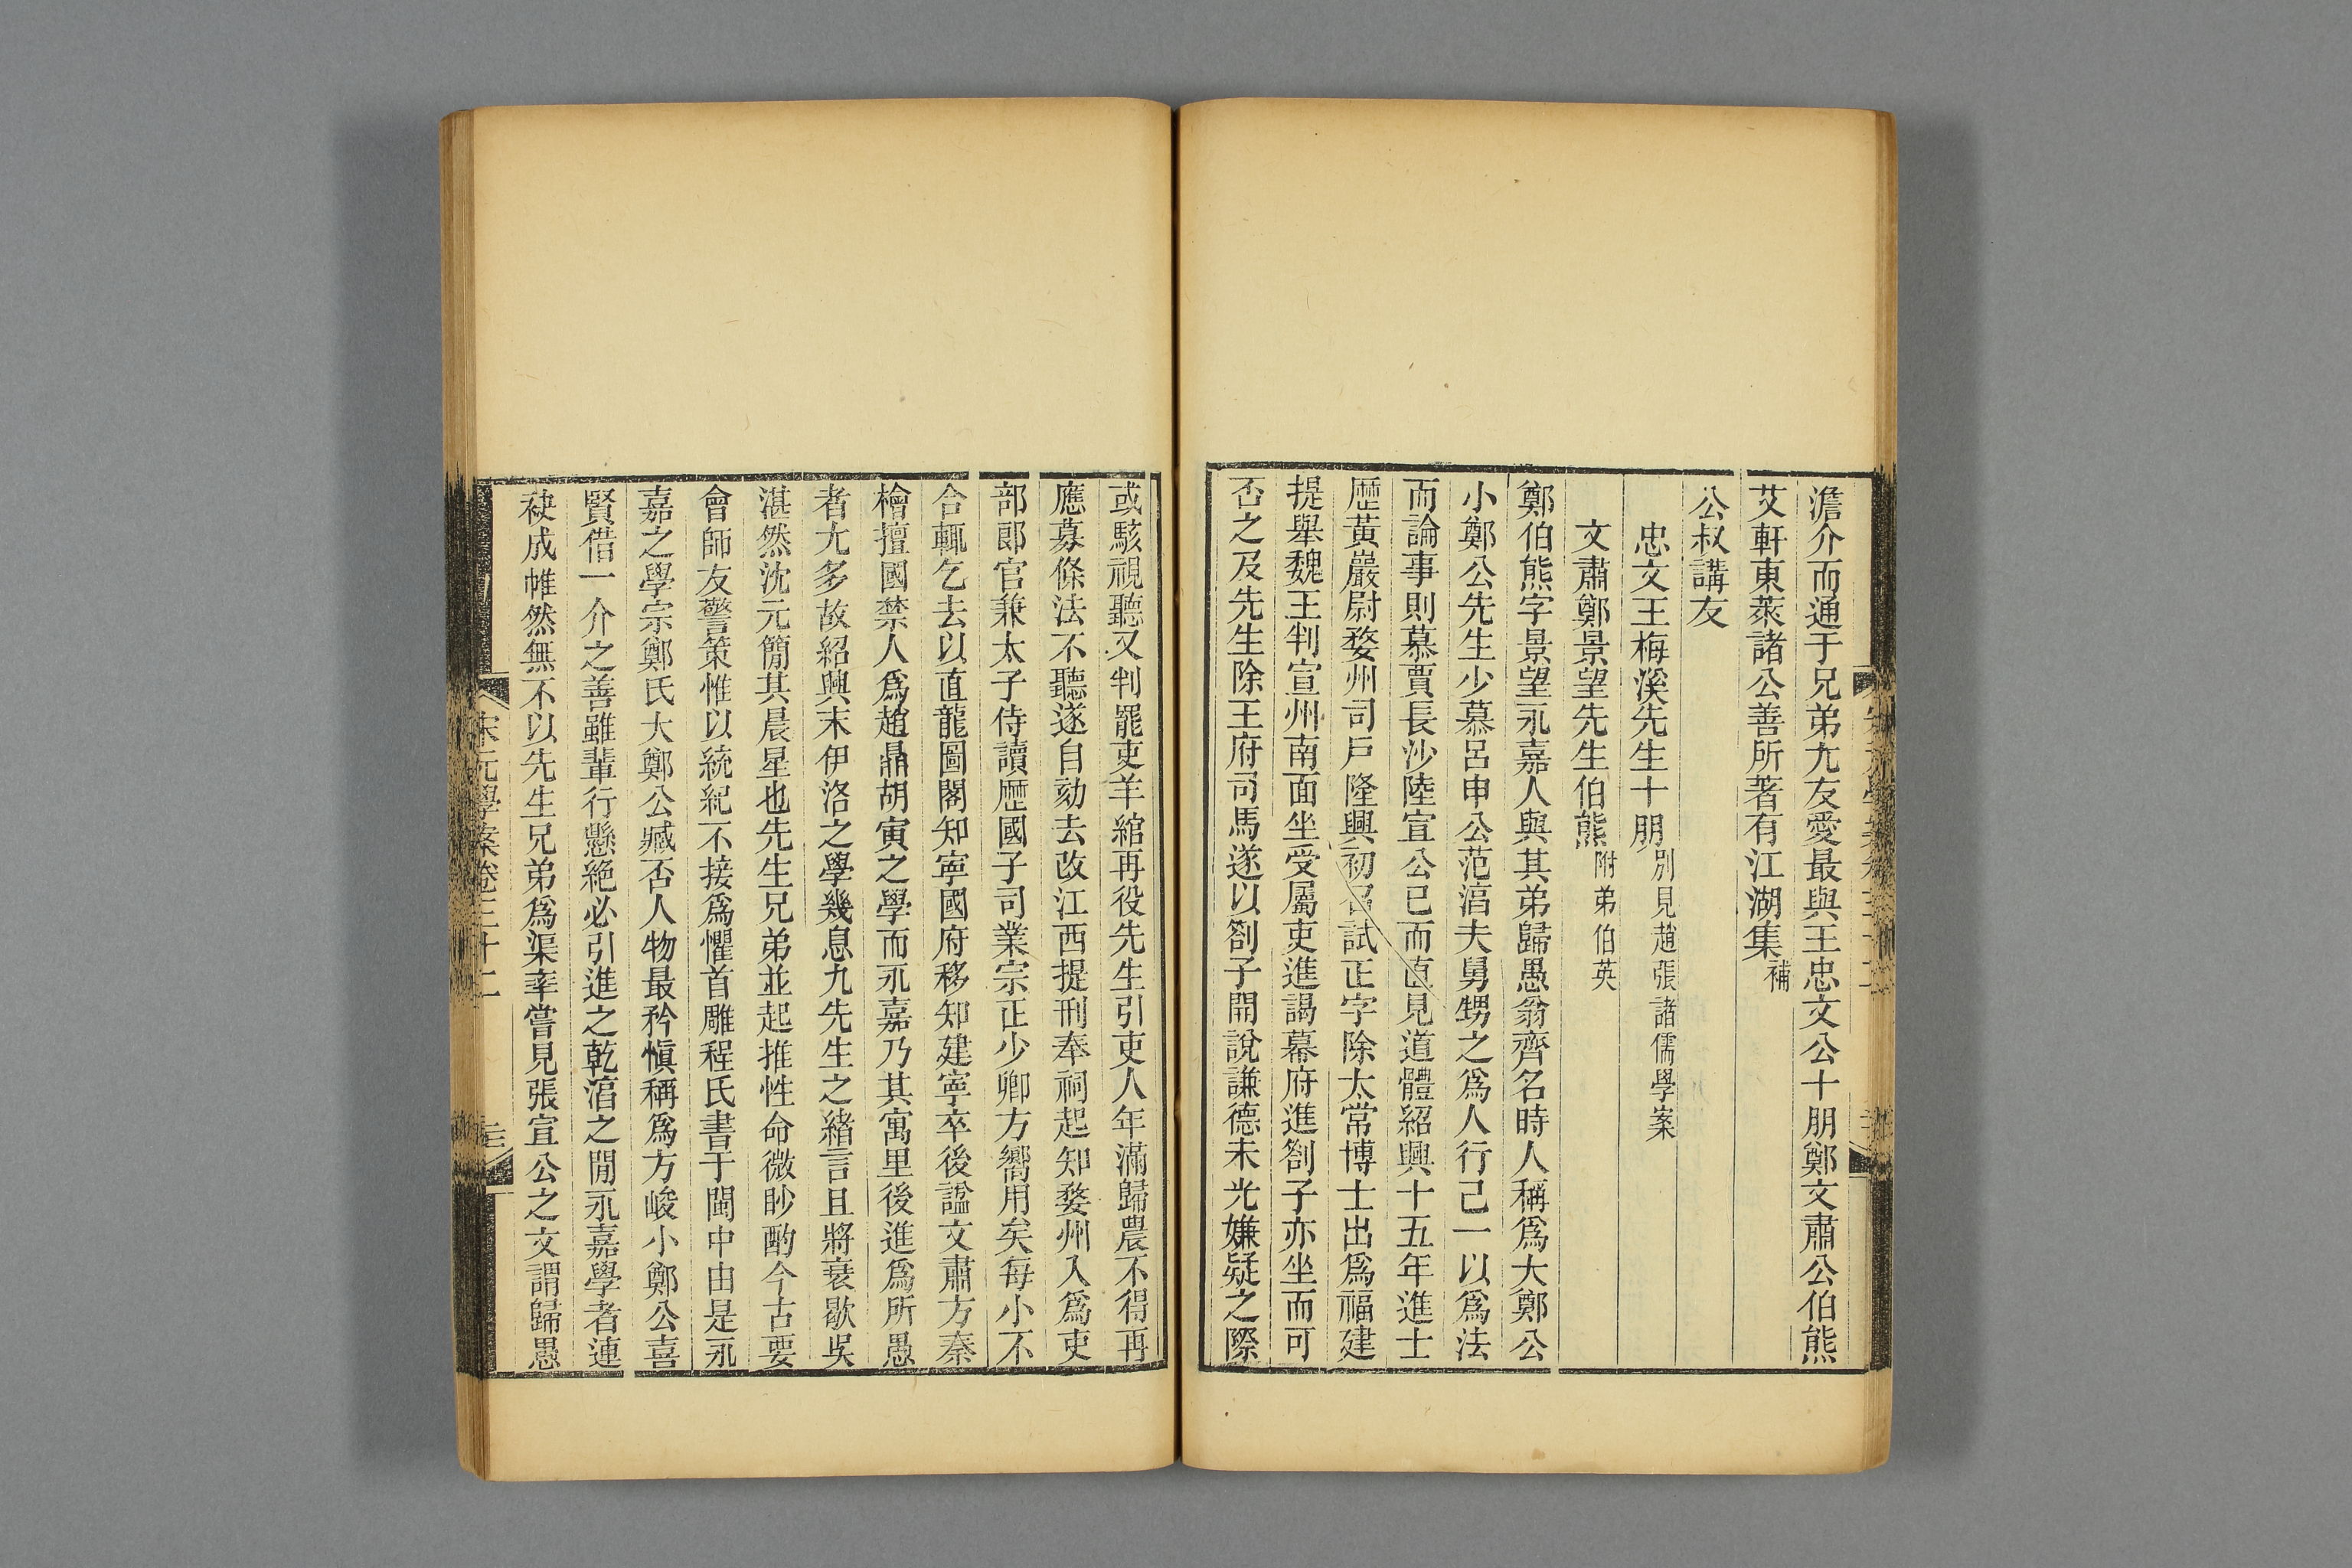 澹介而通于兄弟尤友愛最與王忠文公十朋鄭文肅公伯熊
艾軒東萊諸公善所著有江湖集補
公叔講友
忠文王梅溪先生十朋別見趙張諸儒學案
文肅鄭景望先生伯熊附弟伯英
鄭伯熊字景望永嘉人與其弟歸愚翁齊名時人稱爲大鄭公
小鄭公先生少慕呂申公范淳夫舅甥之爲人行己一以爲法
而論事則慕賈長沙陸宣公已而直見道體紹興十五年進士
歷黃巖尉婺州司戶隆興初召試正字除太常博士出爲福建
提舉魏王判宣州南面坐受屬吏進謁幕府進劄子亦坐而可
否之及先生除王府司馬遂以劄子開說謙德未光嫌疑之際
或駭視聽又判罷吏羊綰再役先生引吏人年滿歸農不得再
應募條法不聽遂自劾去改江西提刑奉祠起知婺州入爲吏
部郞官兼太子侍讀歷國子司業宗正少卿方嚮用矣每小不
合輒乞去以直龍圖閣知寧國府移知建寧卒後諡文肅方秦
檜擅國禁人爲趙鼎胡寅之學而永嘉乃其寓里後進爲所愚
者尤多故紹興末伊洛之學幾息九先生之緒言且將衰歇吳
湛然沈元簡其晨星也先生兄弟並起推性命微眇酌今古要
會師友警策惟以統紀不接爲懼首雕程氏書于閩中由是永
嘉之學宗鄭氏大鄭公臧否人物最矜愼稱爲方峻小鄭公喜
賢借一介之善雖輩行懸絶必引進之乾淳之閒永嘉學者連
袂成帷然無不以先生兄弟爲渠率嘗見張宣公之文謂歸愚
宋元學案卷三十二